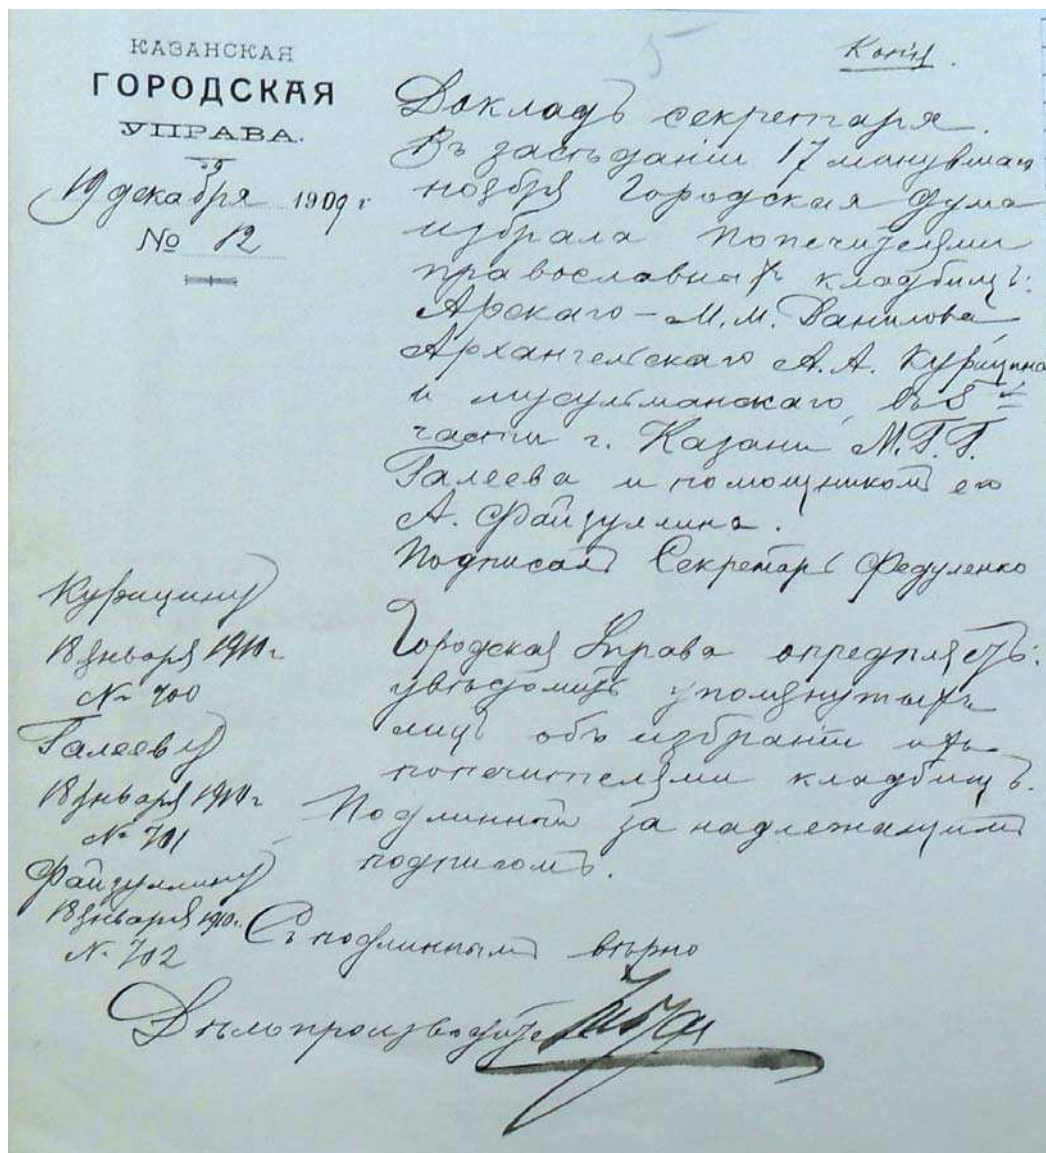 КАЗАНСКАЯ
ГОРОДСКАЯ
УПРАВА.
19 декабря 1909 г
№ 12
5
Копія.
Докладъ секретаря.
Въ засѣданіи 17 минувшаго
ноября Городская Дума
избрала попечителями
православныхъ кладбищъ:
Арскаго – М.М. Данилова,
Архангельскаго А.А. Курицина
и мусульманскаго, въ 5й
части г. Казани М.Г.Г.
Галеева и помощникомъ его
А. Файзуллина.
Подписалъ Секретарь Федуленко
Городская Управа опредѣляетъ:
увѣдомить упомянутыхъ
лицъ объ избраніи ихъ
попечителями кладбищъ.
Подлинный за надлежащимъ
подписомъ.
Курицину
18 января 1910 г
№ 700
Галееву
18 января 1910 г
№ 701
Файзуллину
18 января 1910 г.
№ 702
Съ подлиннымъ вѣрно
Дѣлопроизводитель